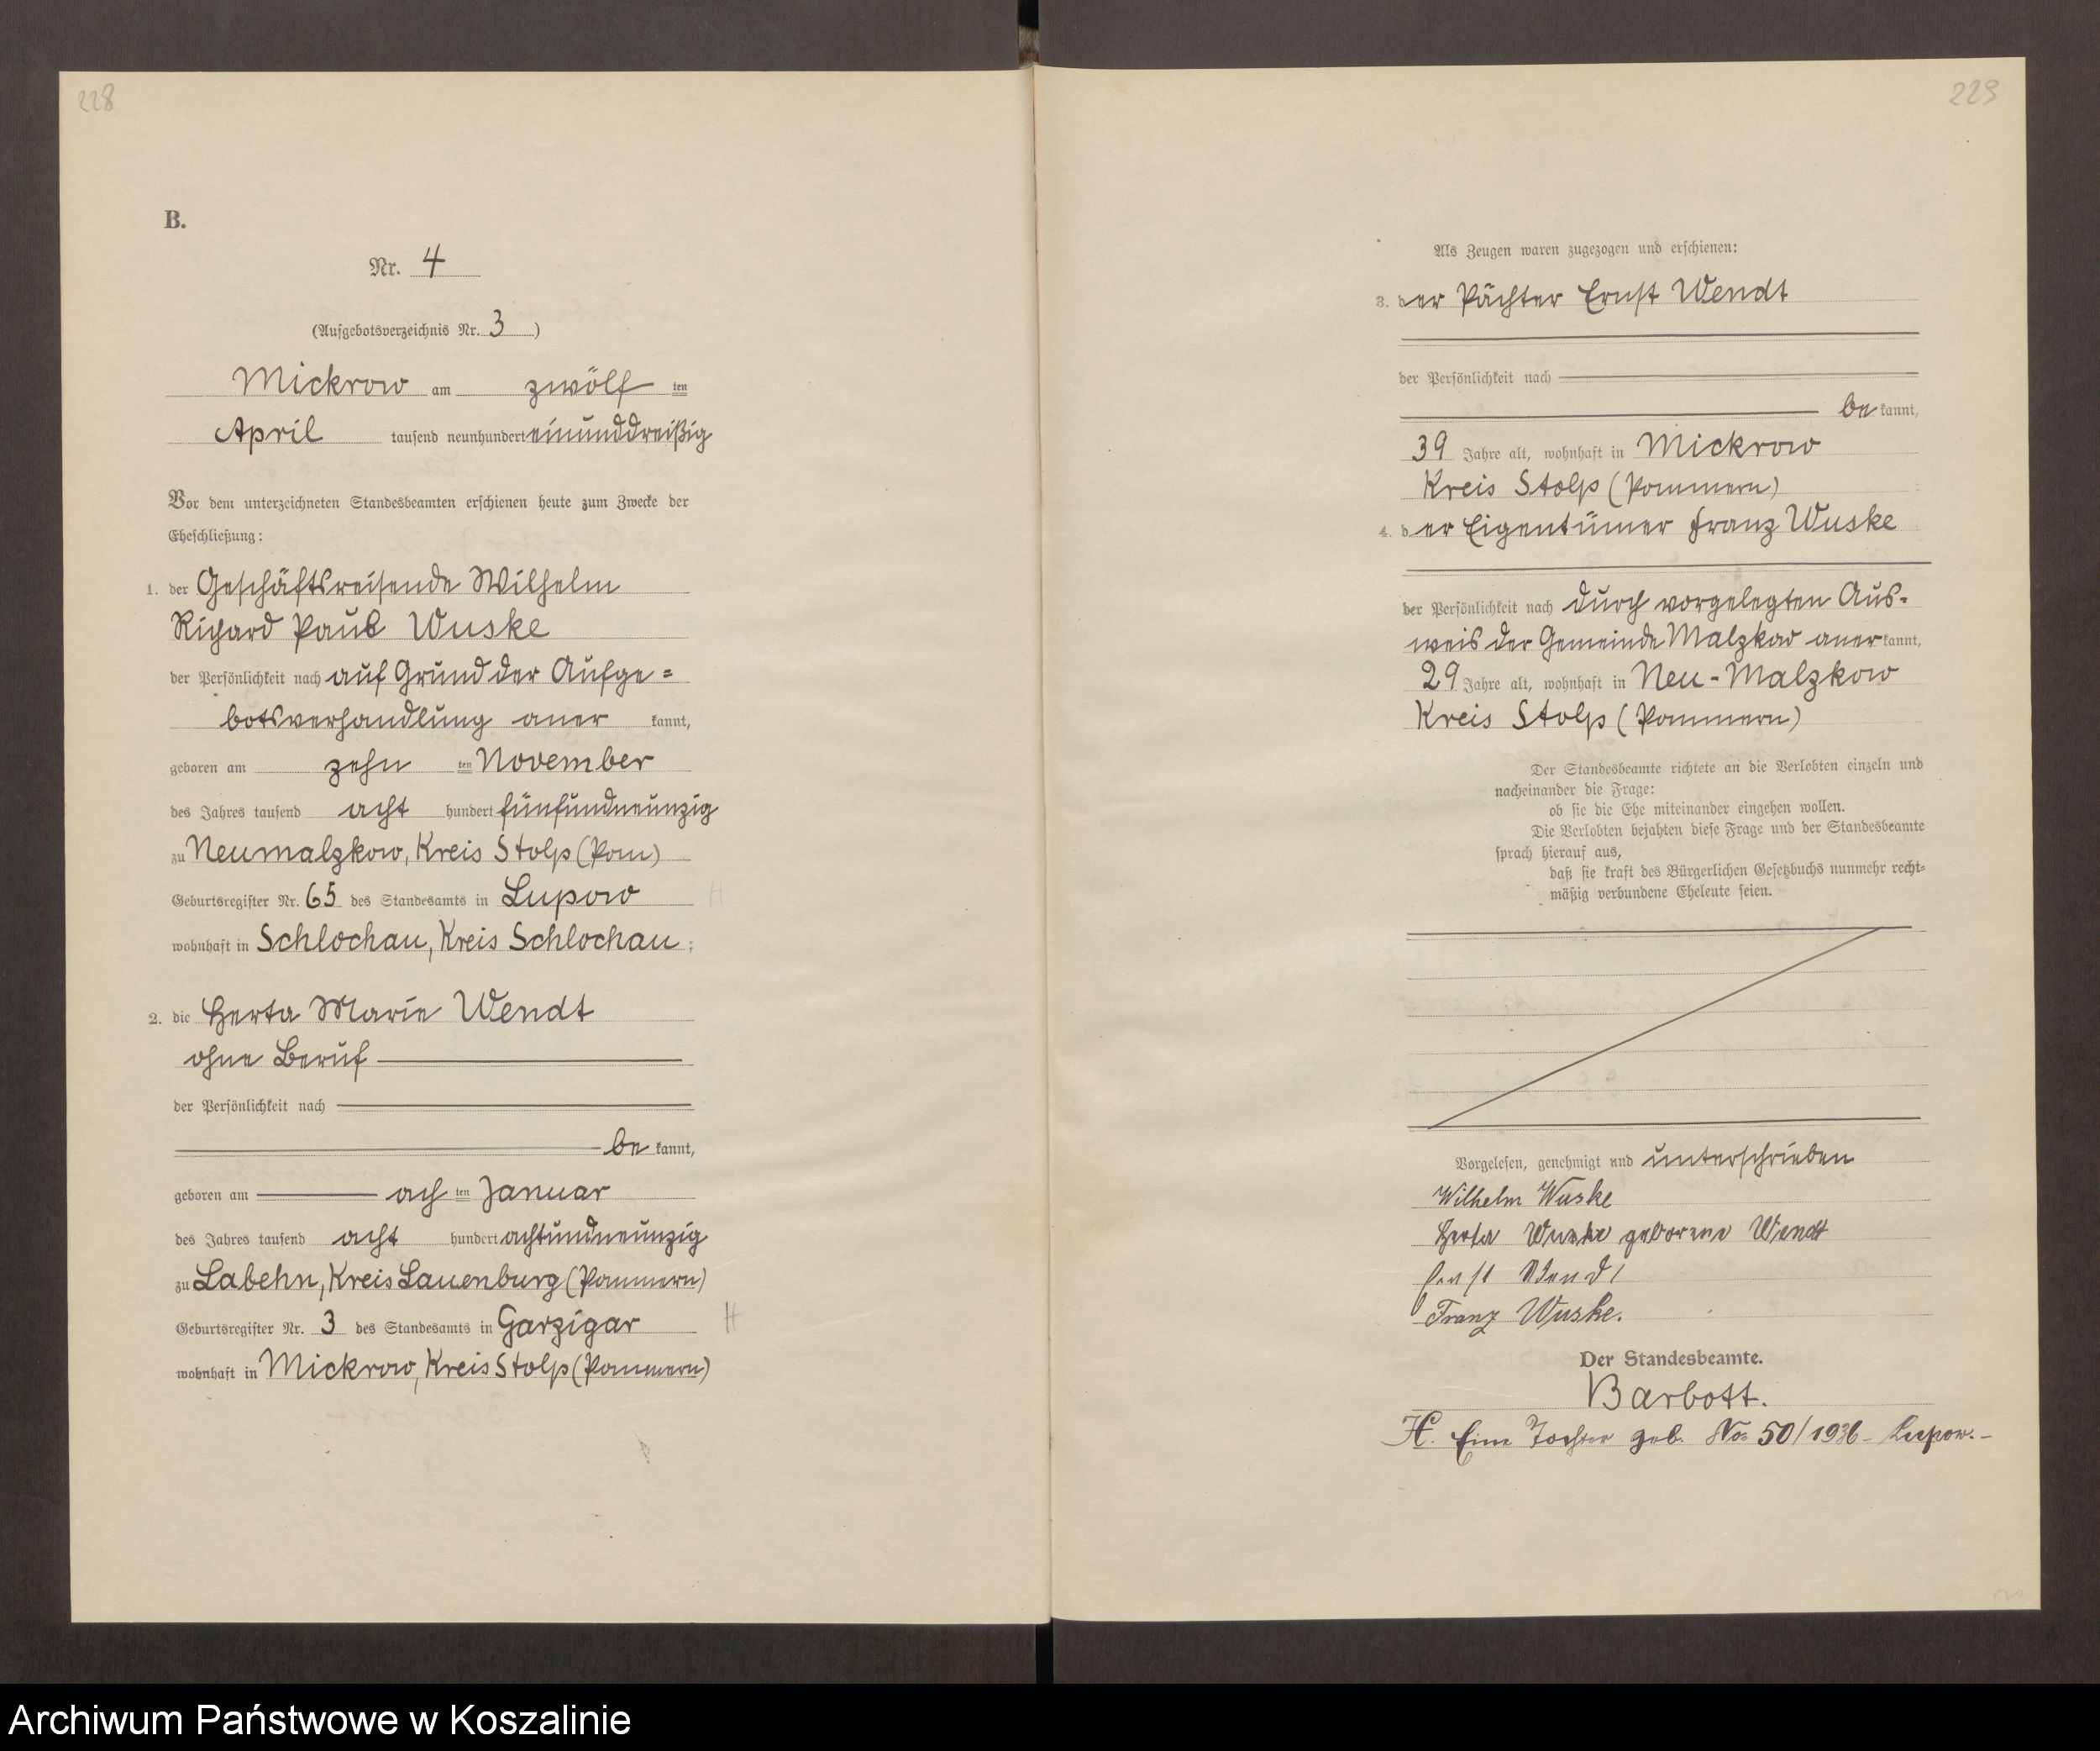 228
B.
Nr. 4
(Aufgebotsverzeichnis Nr. 3)
Mickrow am zwölf ten
April tausend neunhundert einunddreißig
Vor dem unterzeichneten Standesbeamten erschienen heute zum Zwecke der
Eheschließung:
1. der Geschäftsreisende Wilhelm
Richard Paul Wuske
der Persönlichkeit nach auf Grund der Aufge=
botsverhandlung aner kannt,
geboren am zehn ten November
des Jahres tausend acht hundert fünfundneunzig
zu Neumalzkow, Kreis Stolp (Pom)
Geburtsregister Nr. 65 des Standesamts in Lupow H
wohnhaft in Schlochau, Kreis Schlochau;
2. die Herta Marie Wendt
ohne Beruf
der Persönlichkeit nach
be kannt,
geboren am ach ten Januar
des Jahres tausend acht hundert achtundneunzig
zu Labehn, Kreis Lauenburg (Pommern)
Geburtsregister Nr. 3 des Standesamts in Garzigar H
wohnhaft in Mickrow, Kreis Stolp (Pommern)
229
Als Zeugen waren zugezogen und erschienen:
3. der Pächter Ernst Wendt
der Persönlichkeit nach
be kannt,
39 Jahre alt, wohnhaft in Mickrow
Kreis Stolp (Pommern)
4. der Eigentümer Franz Wuske
der Persönlichkeit nach durch vorgelegten Aus=
weis der Gemeinde Malzkow aner kannt,
29 Jahre alt, wohnhaft in Neu-Malzkow
Kreis Stolp (Pommern)
Der Standesbeamte richtete an die Verlobten einzeln und
nacheinander die Frage:
ob sie die Ehe miteinander eingehen wollen.
Die Verlobten bejahten diese Frage und der Standesbeamte
sprach hierauf aus,
daß sie kraft des Bürgerlichen Gesetzbuchs nunmehr recht=
mäßig verbundene Eheleute seien.
Vorgelesen, genehmigt und unterschrieben
Wilhelm Wuske
Herta Wuske geborene Wendt
Ernst Wendt
Franz Wuske.
Der Standesbeamte.
Barbott.
H. Eine Tochter geb. No 50/1936 - Lupow. -
Archiwum Państwowe w Koszalinie